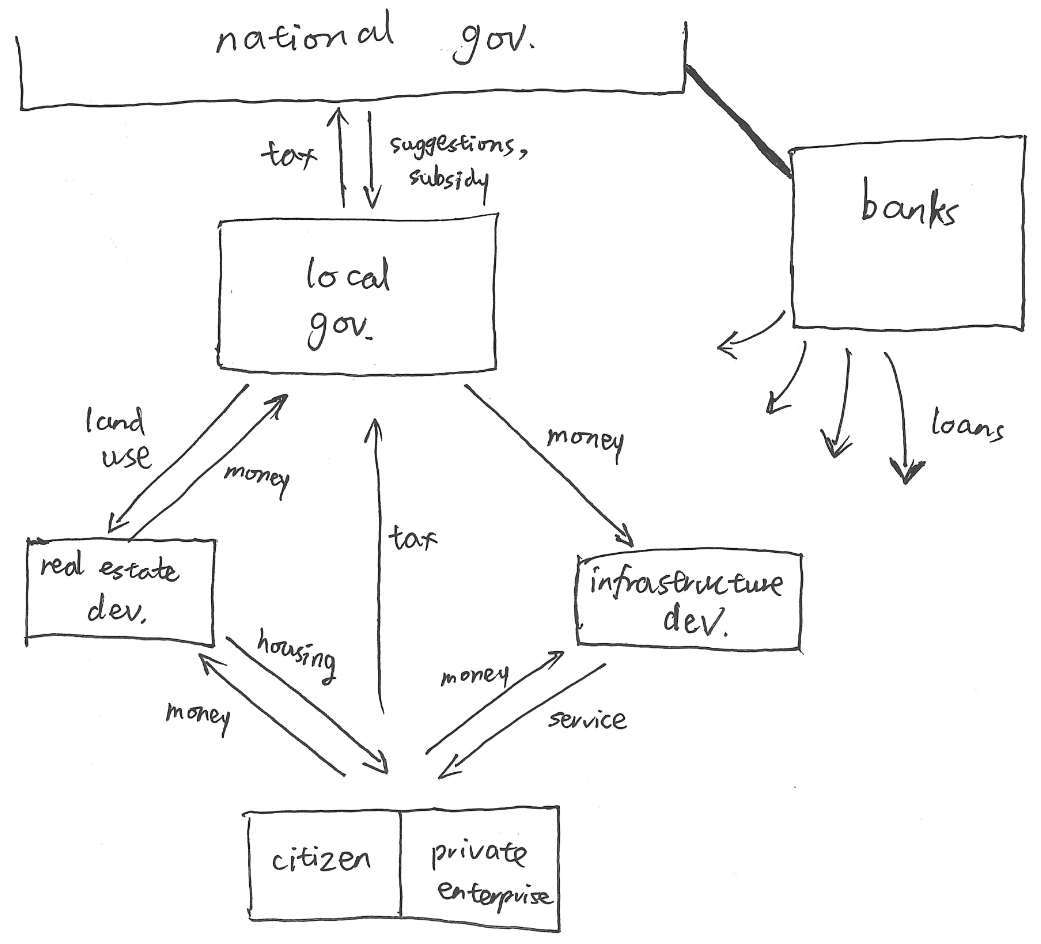 national gov.
tax
suggestions,
subsidy
banks
local
gov.
loans
land
use
money
money
tax
real estate
dev.
infrastructure
dev.
housing
money
money
service
citizen
private
enterprise